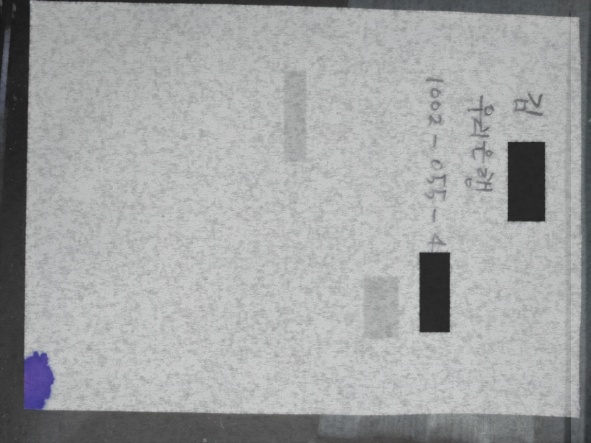 김
우리은행
1002-055-4